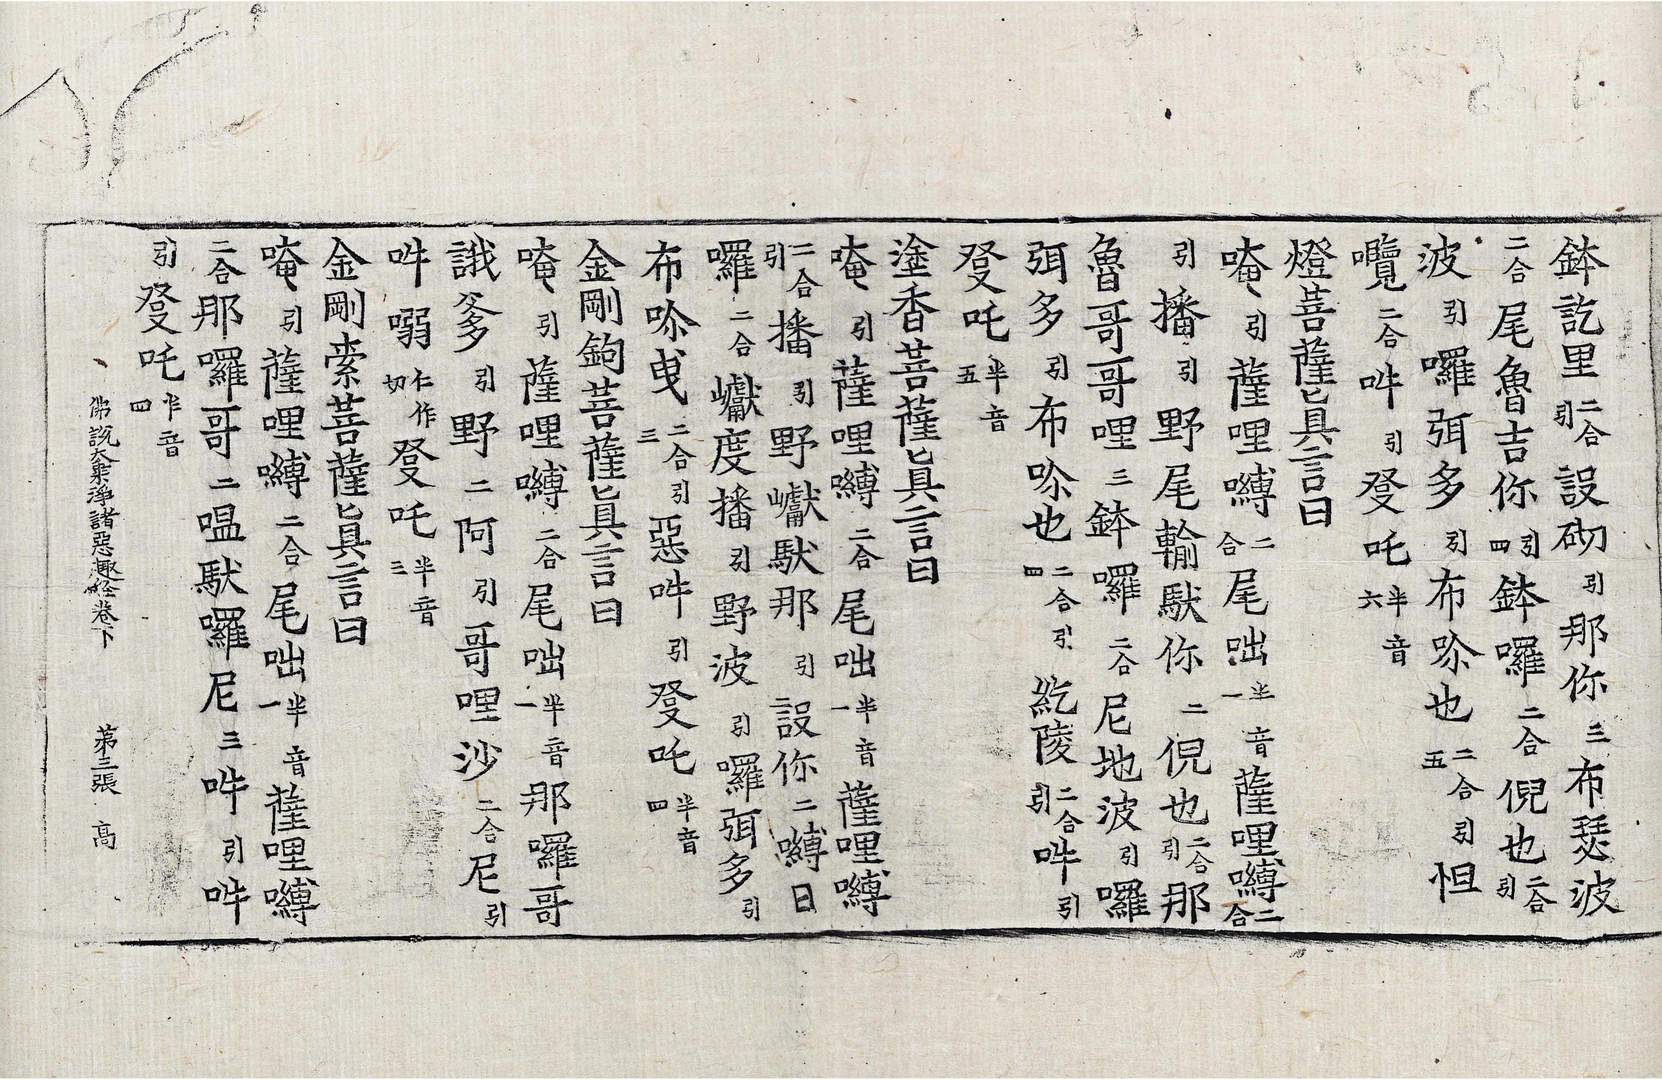 鉢訖里二合引設砌引那你三布瑟波
二合尾魯吉你引四鉢囉二合倪也二合引
波引囉弭多引布唥也二合引五怛
囕二合吽引癹吒半音六
燈菩薩真言曰
唵引薩哩嚩二合尾咄半音一薩哩嚩二合
引播引野尾輸馱你二倪也二合引那
魯哥哥哩三鉢囉二合尼地波引囉
弭多引布唥也二合引四紇陵二合引吽引
癹吒半音五
塗香菩薩真言曰
唵引薩哩嚩二合尾咄半音一薩哩嚩
二合引播引野巘馱那引設你二嚩日
囉二合巘度播引野波引囉弭多引
布唥曳二合引三惡吽引癹吒半音四
金剛鉤菩薩真言曰
唵引薩哩嚩二合尾咄半音一那囉哥
誐爹引野二阿引哥哩沙二合尼引
吽嗍仁作切癹吒半音三
金剛索菩薩真言曰
唵引薩哩嚩二合尾咄半音一薩哩嚩
二合那囉哥二嗢馱囉尼三吽引吽
引癹吒半音四
佛說大乘淨諸惡趣經卷下 第三張 高